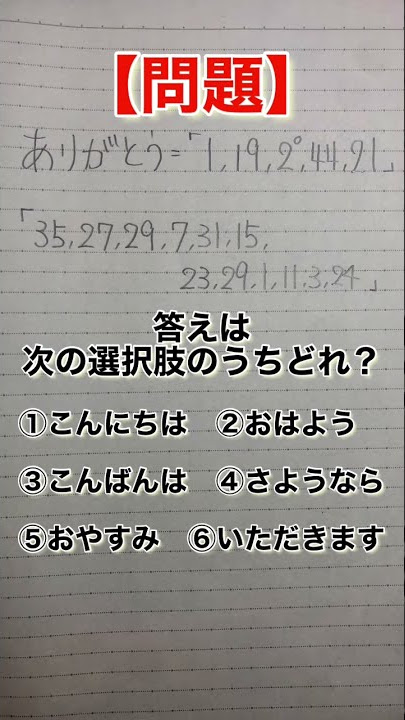 【問題】
ありがとう=「1,19,2°,44,21」
「35,27,29,7,31,15,
23,29,1,11,3,24」
答えは
次の選択肢のうちどれ？
①こんにちは ②おはよう
③こんばんは ④さようなら
⑤おやすみ ⑥いただきます